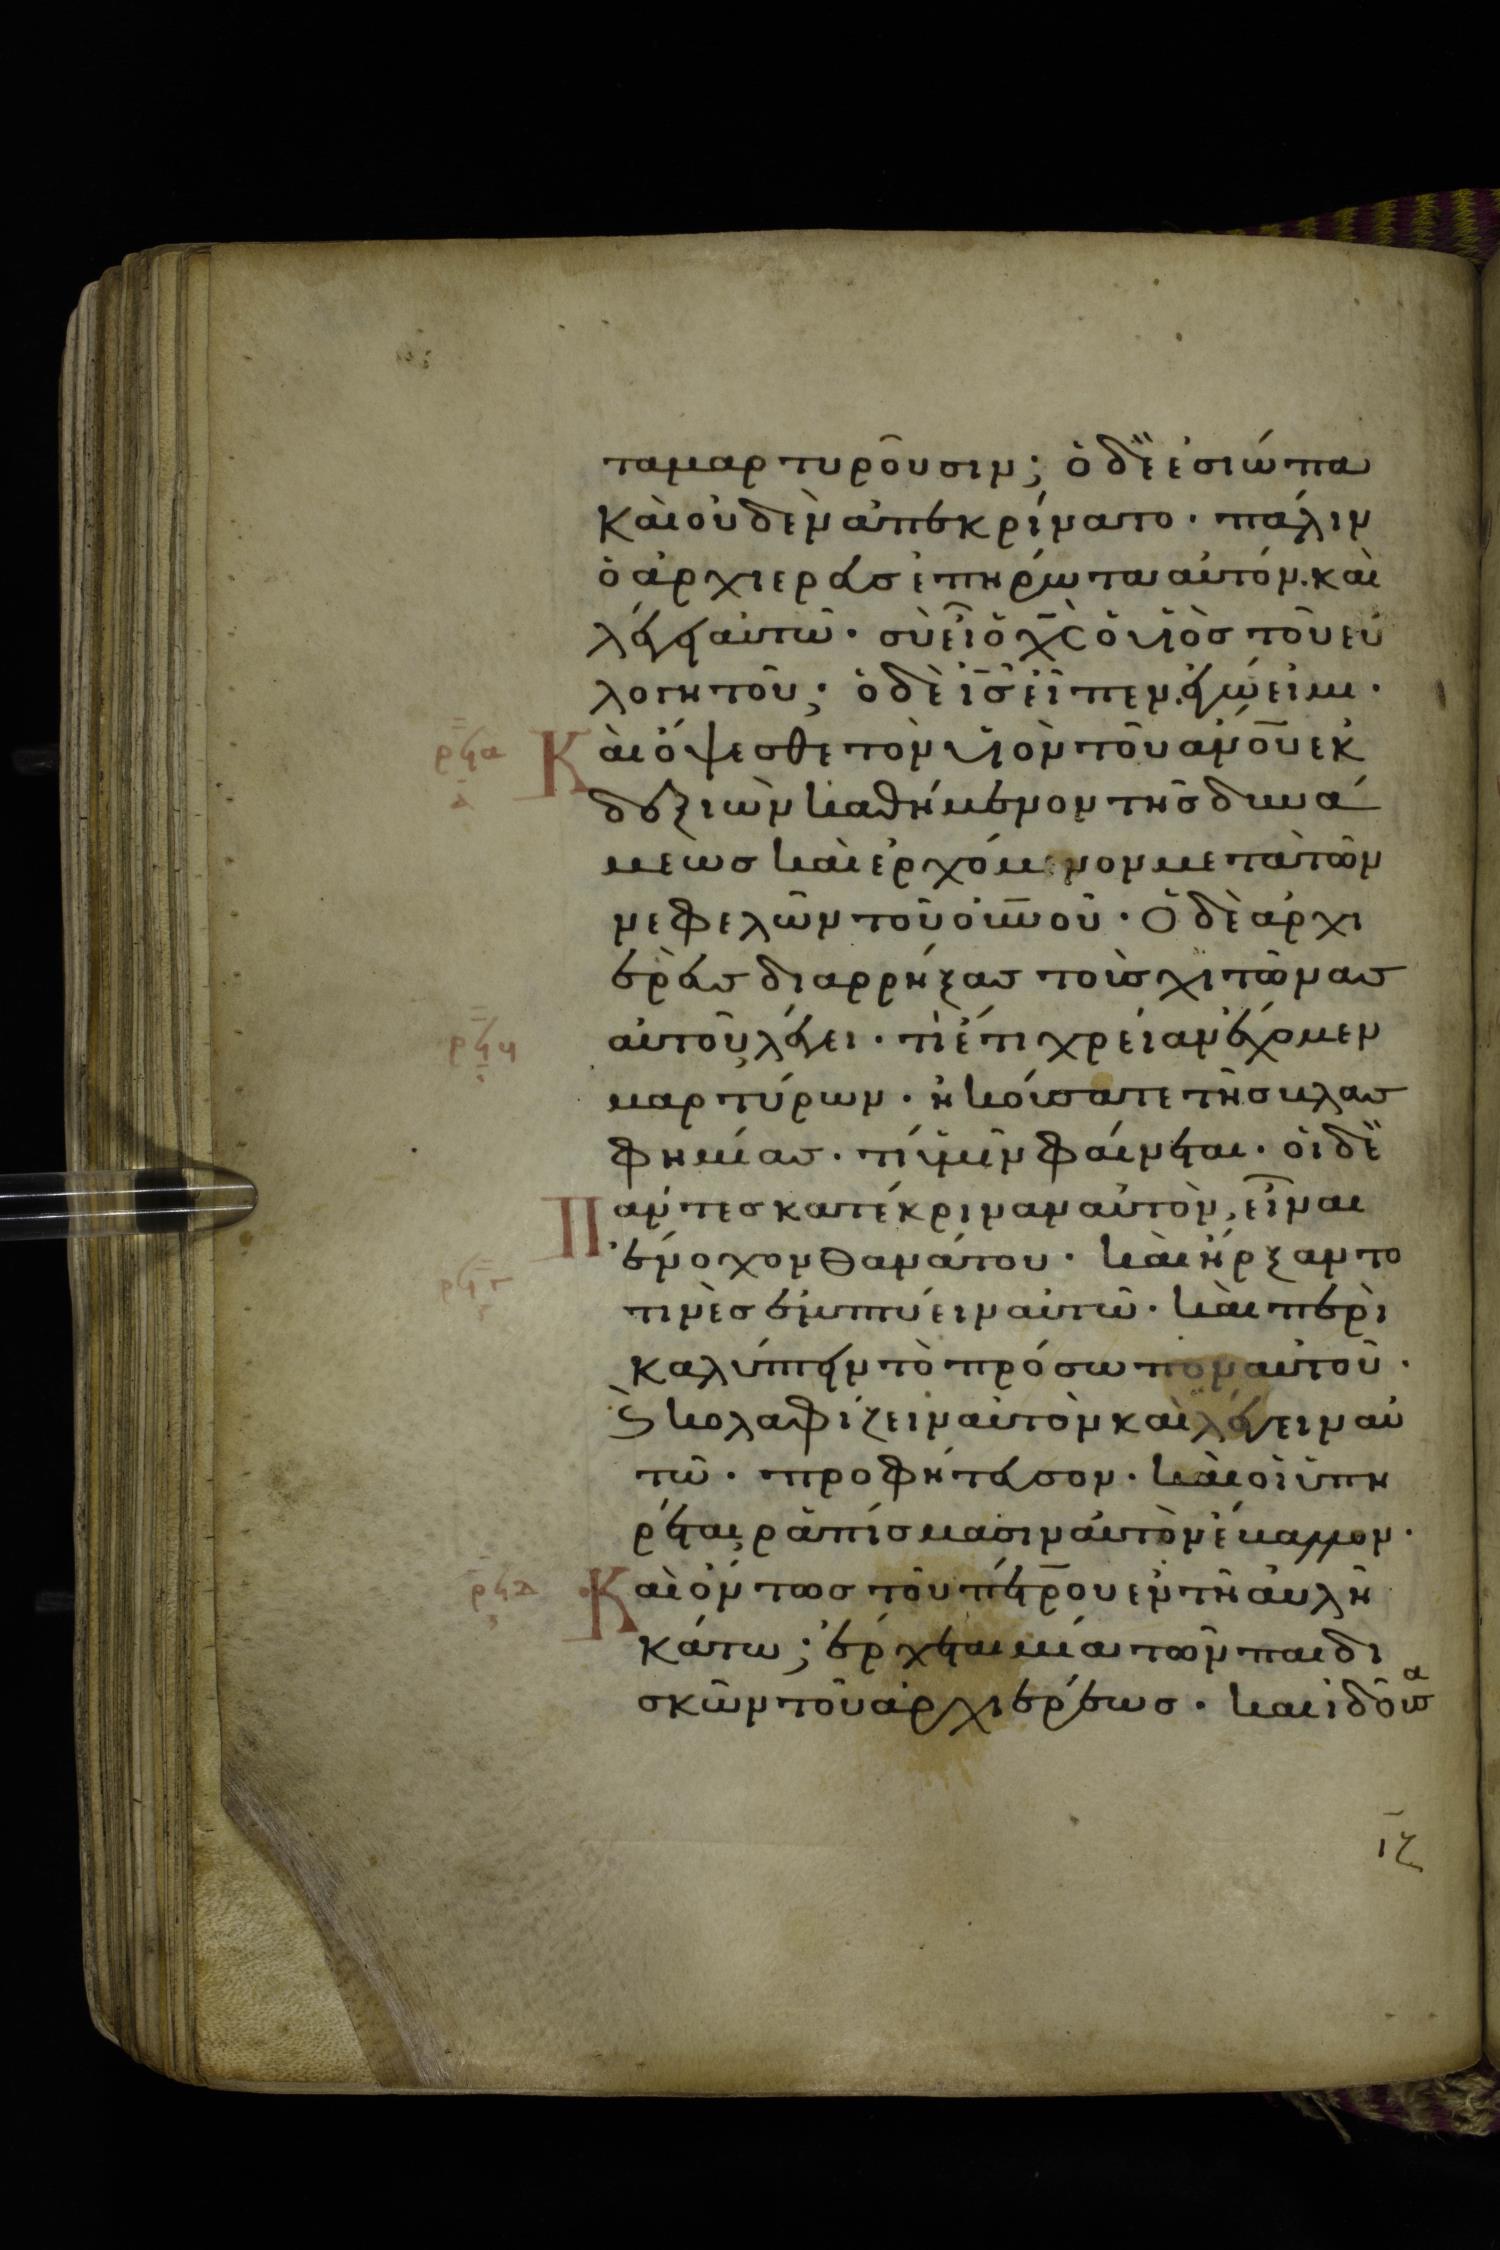 ταμαρτυροῦσιν; ὁ δὲ ἐσιώπα
καὶ οὐδὲν ἀπεκρίνατο · πάλιν
ὁ ἀρχιερεύσ ἐπηρώτα αὐτόν. καὶ
λέγει αὐτῶ · σὺ εἶ ὁ χ̅ς̅ ὁ υἱὸσ τοῦ εὐ
λογητοῦ; ὁ δὲ ι̅σ̅ εἶπεν. ἐγώ εἰμι ·
ρϟα
Καὶ ὄψεσθε τὸν υἱὸν τοῦ α̅ν̅ο̅υ̅ ἐκ
δεξιῶν καθήμενον τῆσ δυνά
μεωσ καὶ ἐρχόμενον μετὰ τῶν
νεφελῶν τοῦ ο̅υ̅ν̅ο̅υ̅ · Ὁ δὲ ἀρχι
ερεὺσ διαρρήξασ τοὺσ χιτῶνασ
ρϟβ
αὐτοῦ, λέγει · τί ἔτι χρείαν ἔχομεν
μαρτύρων · ἠκούσατε τῆσ βλασ
φημίασ · τί ὑμῖν φαίνεται · οἱ δὲ
Πάντεσ κατέκριναν αὐτὸν, εἶναι
ἔνοχον θανάτου · καὶ ἤρξαντο
ρϟγ
τινὲσ ἐμπτύειν αὐτῶ · καὶ περὶ
καλύπτειν τὸ πρόσωπον αὐτοῦ ·
ϛ̀ κολαφίζειν αὐτὸν καὶ λέγειν αὐ
τῶ · προφήτευσον · καὶ οἱ ὑπη
ρέται, ῥαπίσμασιν αὐτὸν ἔβαλλον ·
ρϟδ
Καὶ ὄντωσ τοῦ πέτρου ἐν τῆ αὐλῆ
κάτω; ἔρχεται μία τῶν παιδι
σκῶν τοῦ ἀρχιερέωσ · καὶ ἰδοῦσα
ιζ